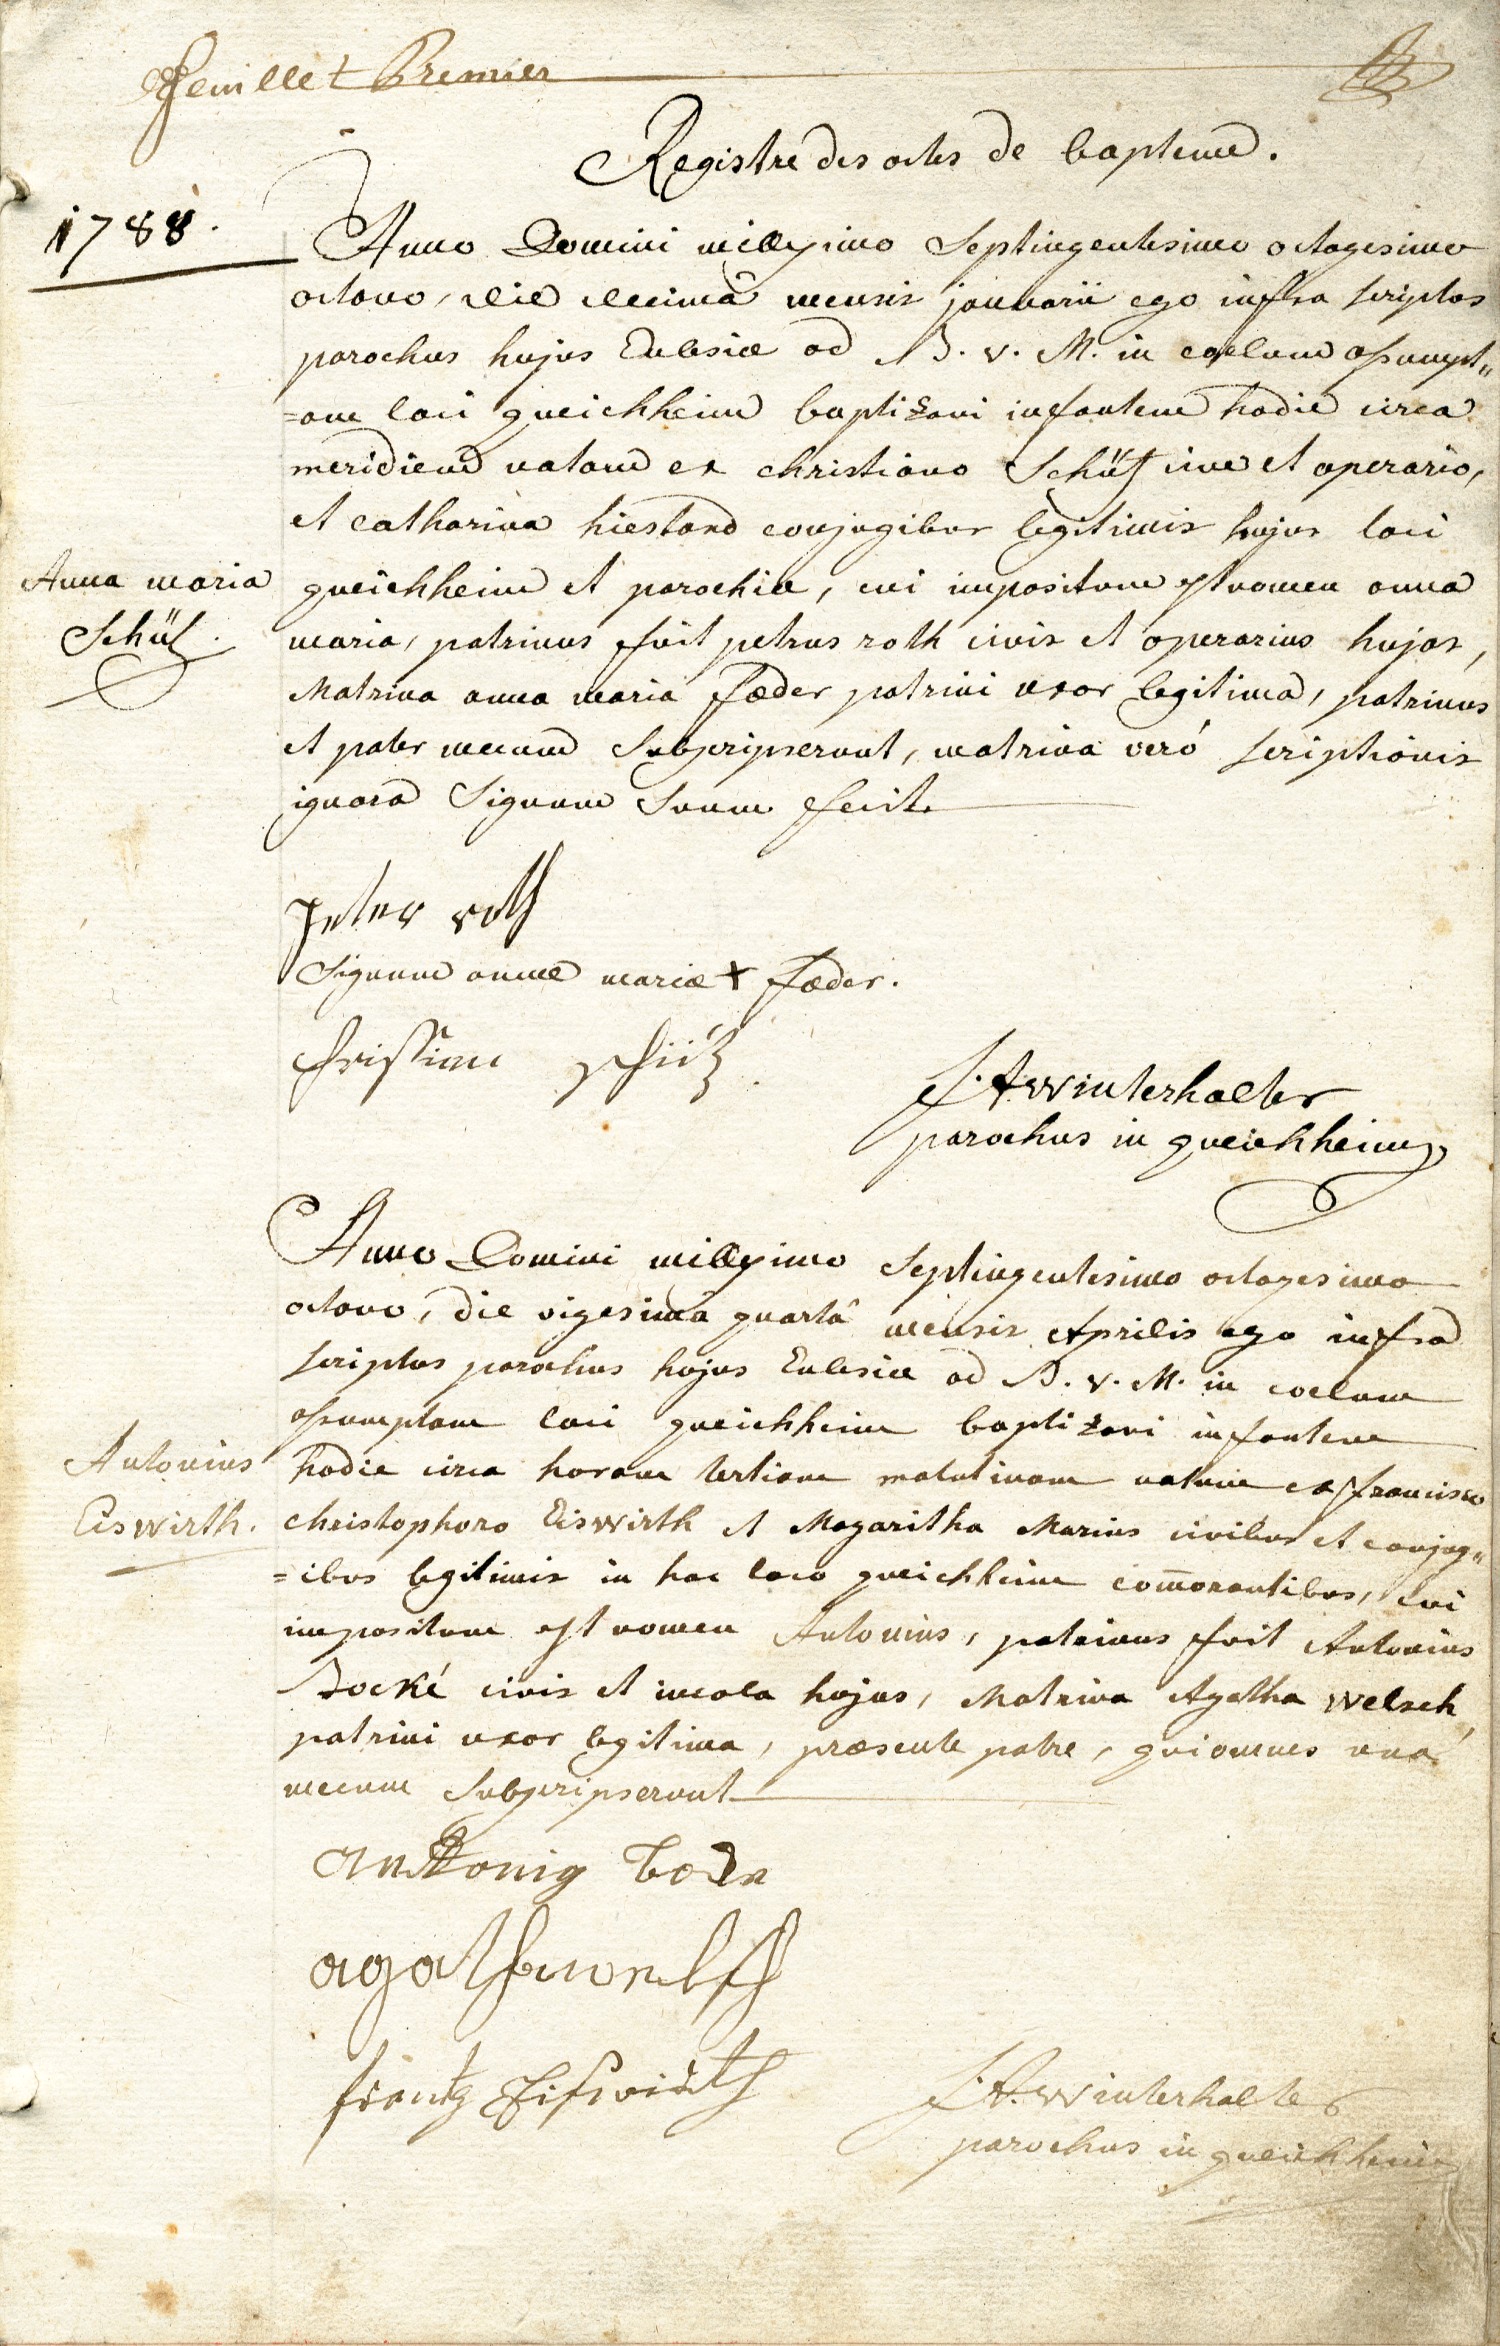 Feuillet Premier
Registre des actes de bapteme.
1788.
Anno Domini millesimo Septingentesimo octogesimo
octavo, die decimâ mensis januarii ego infra scriptus
parochus hujus Ecclesiæ ad B. v. M. in coelum assumpt„
=am loci queichheim baptizavi infantem hodie circa
meridiem natam ex christiano Schütz cive et operario,
et catharina hiestand conjugibus legitimis hujus loci
Anna maria
queichheim et parochiæ, cui impositum est nomen anna
Schütz.
maria, patrinus fuit petrus roth civis et operarius hujas,
Matrina anna maria fæder patrini uxor legitima, patrinus
et pater mecum Subscripserunt, matrina veró scriptionis
ignara Signum Suum fecit.
peter roth
Signum annæ mariæ + fæder.
christian schütz
J. A winterhalter
parochus in queichheim
Anno Domini millesimo Septingentesimo octogesimo
octavo, die vigesima quartâ mensis Aprilis ego infra
scriptus parochus hujus Ecclesiæ ad B. v. M. in coelum
assumptam loci queichheim baptizavi infantem
Antonius
hodie circa horam tertiam matutinam natum ex francisco
Eiswirth.
christophoro Eiswirth et Magaritha Marius civibus et conjug„
=ibus legitimis in hac loco queichheim com̄orantibus, cui
impositum est nomen Antonius, patrinus fuit Antonius
Bocké civis et incola hujus, Matrina Agatha welsch
patrini uxor legitima, præsente patre, qui omnes una
mecum Subscripserunt
anttonig
agatha welsch
frantz Eiswirth
J. A. winterhalter
parochus in queichheim